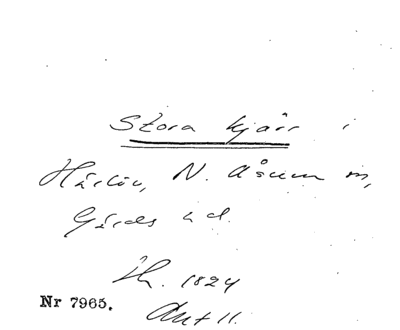 Stora kjärr i
Härlöv, N. Åsum m,
Gärds hd.
Th. 1824
Nr 7965. Ant 11.